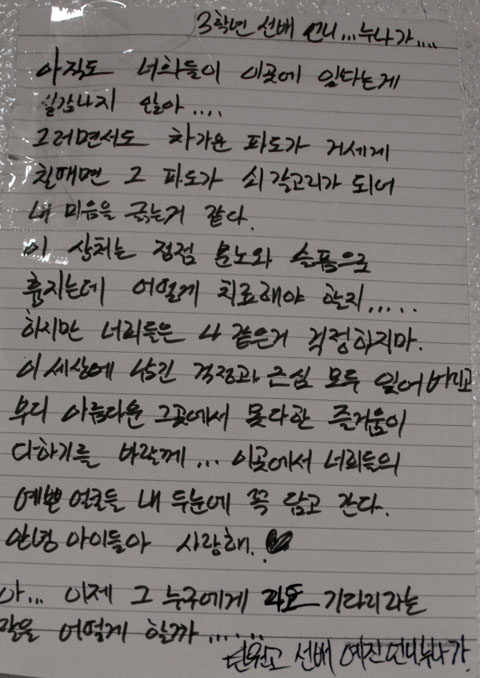 3학년 선배 언니...누나가....
아직도 너희들이 이곳에 있다는게
실감나지 않아....
그러면서도 차가운 파도가 거세게
칠때면 그 파도가 쇠갈고리가 되어
내 마음을 긁는거 같다.
이 상처는 점점 분노와 슬픔으로
흉지는데 어떻게 치료해야 할지.....
하지만 너희들은 나 같은거 걱정하지마.
이 세상에 남긴 걱정과 근심 모두 잊어버리고
부디 아름다운 그곳에서 못다한 즐거움이
다하기를 바랄께... 이곳에서 너희들의
예쁜 얼굴들 내 두눈에 꼭 담고 간다.
안녕 아이들아 사랑해.
아... 이제 그 누구에게 기다리라는
말을 어떻게 할까......
단원고 선배 예진언니누나가